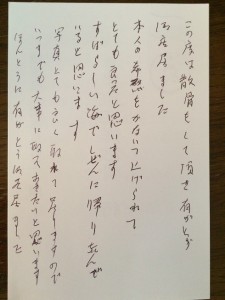 この度は散骨をして頂き有がとう
御座居ました
本人の希望をかないて上げられて
とても良かったと思います
すばらしい海でしぜんに帰り
いると思います
写真とてもよく取れて
いつまでも大事に取っておきたいと思います
ほんとうに有がとう御座居ました